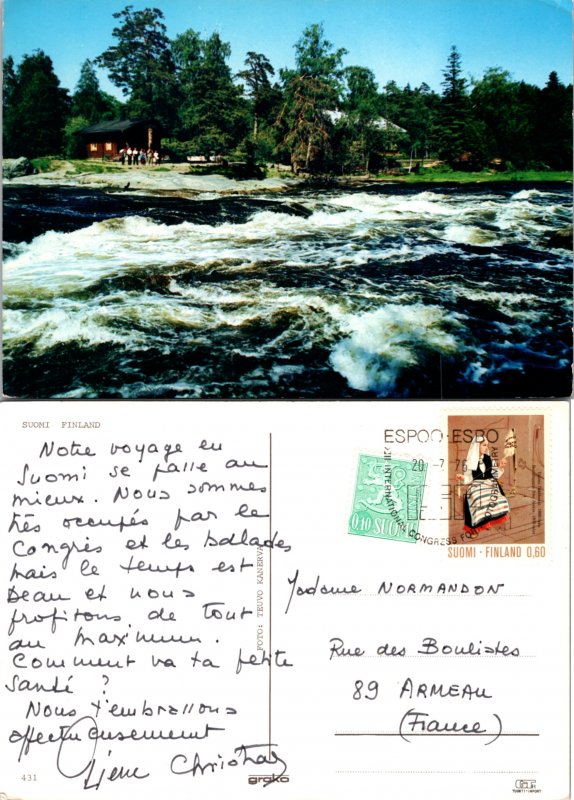 SUOMI FINLAND
Notre voyage en
Suomi se passe au
mieux. Nous sommes
très occupés par le
Congrès et les ballades
mais le temps est
beau et nous
profitons de tout
au maximum.
Comment va ta petite
santé ?
Nous t'embrassons
affectueusement
431
FOTO: TEUVO KANERVA
groko
ESPOO-ESBO
20.-7.76
INTERNATIONAL CONGRESS FOR
0,10 SUOMI
SUOMI - FINLAND 0,60
Madame NORMANDON
Rue des Boulistes
89 ARMEAU
(France)